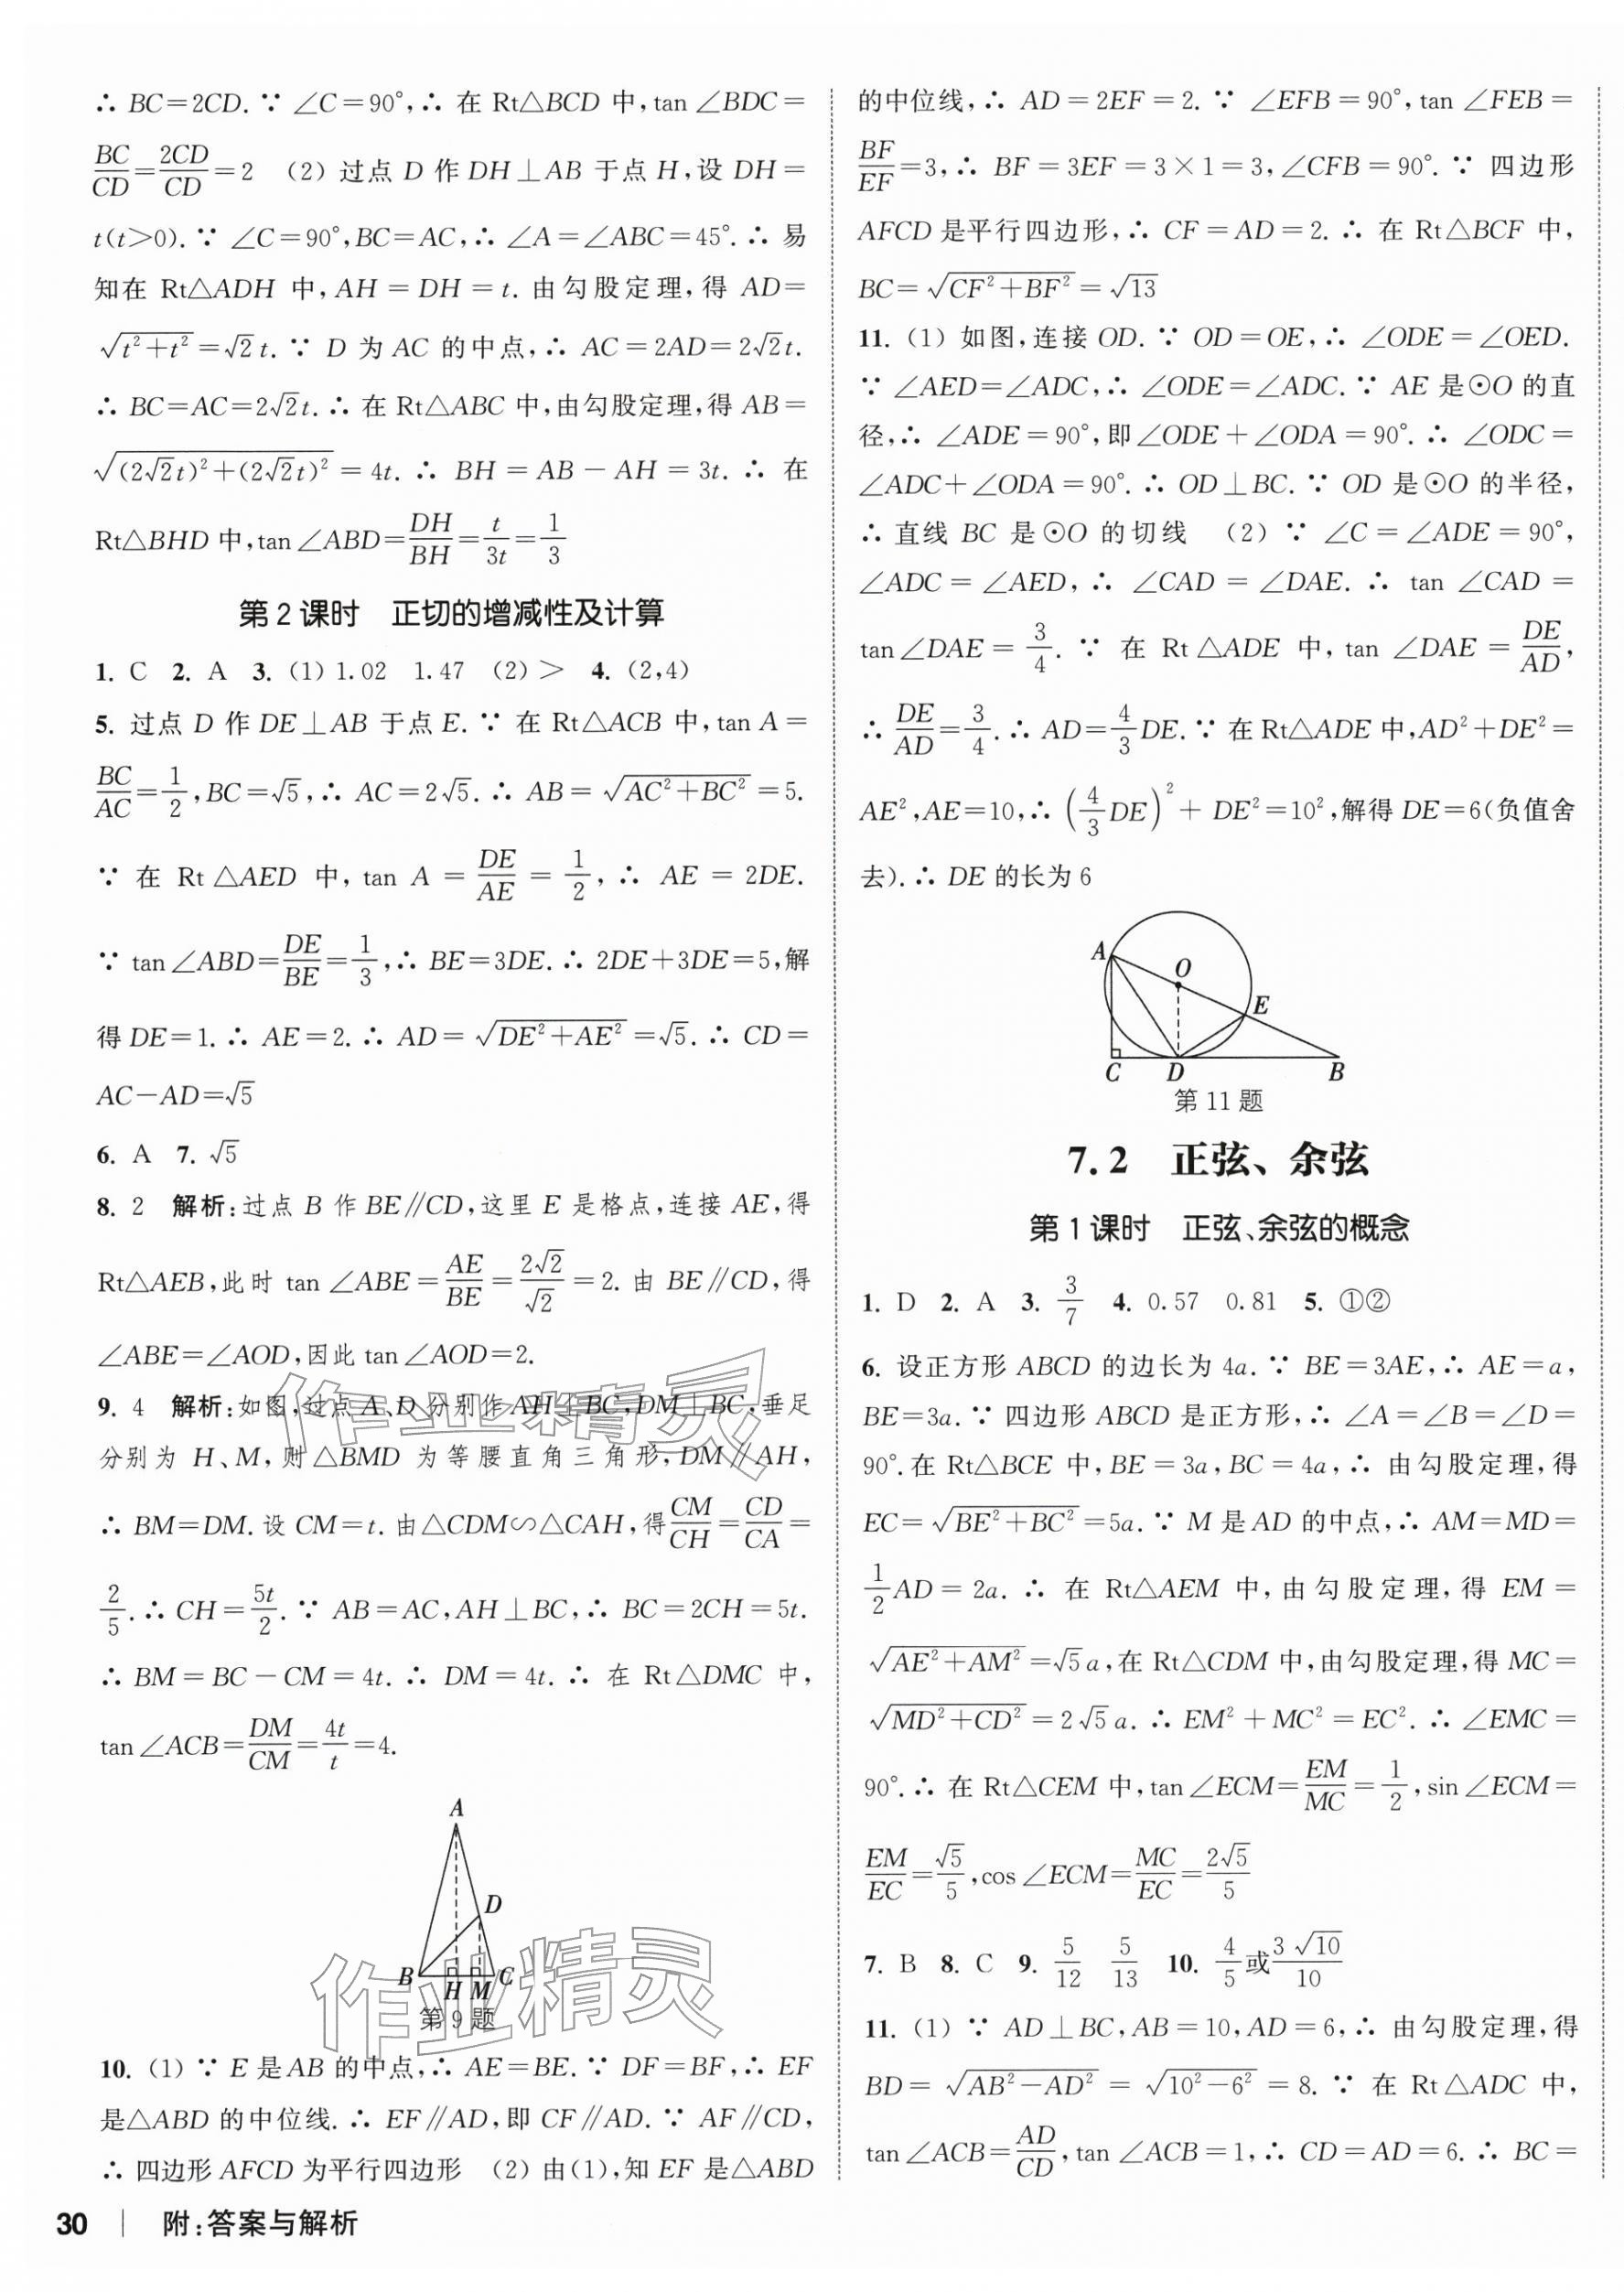 ∴ BC=2CD. ∵ ∠C=90°,∴ 在 Rt△BCD 中,tan ∠BDC=
BC/CD=2CD/CD=2 (2) 过点 D 作 DH⊥AB 于点 H,设 DH=
t(t>0). ∵ ∠C=90°,BC=AC,∴ ∠A=∠ABC=45°. ∴ 易
知在 Rt△ADH 中,AH=DH=t. 由勾股定理,得 AD=
√(t²+t²)=√2t. ∵ D 为 AC 的中点,∴ AC=2AD=2√2t.
∴ BC=AC=2√2t. ∴ 在 Rt△ABC 中,由勾股定理,得 AB=
√((2√2t)²+(2√2t)²)=4t. ∴ BH=AB-AH=3t. ∴ 在
Rt△BHD 中,tan ∠ABD=DH/BH=t/3t=1/3
第 2 课时 正切的增减性及计算
1. C 2. A 3. (1) 1.02 1.47 (2) > 4. (2,4)
5. 过点 D 作 DE⊥AB 于点 E. ∵ 在 Rt△ACB 中,tan A=
BC/AC=1/2,BC=√5,∴ AC=2√5. ∴ AB=√(AC²+BC²)=5.
∵ 在 Rt△AED 中,tan A=DE/AE=1/2,∴ AE=2DE.
∵ tan∠ABD=DE/BE=1/3,∴ BE=3DE. ∴ 2DE+3DE=5,解
得 DE=1. ∴ AE=2. ∴ AD=√(DE²+AE²)=√5. ∴ CD=
AC-AD=√5
6. A 7. √5
8. 2 解析:过点 B 作 BE∥CD,这里 E 是格点,连接 AE,得
Rt△AEB,此时 tan ∠ABE=AE/BE=2√2/√2=2. 由 BE∥CD,得
∠ABE=∠AOD,因此 tan∠AOD=2.
9. 4 解析:如图,过点 A、D 分别作 AH⊥BC,DM⊥BC,垂足
分别为 H、M,则△BMD 为等腰直角三角形,DM∥AH,
∴ BM=DM. 设 CM=t. 由△CDM∽△CAH,得CM/CH=CD/CA=
2/5. ∴ CH=5t/2. ∵ AB=AC,AH⊥BC,∴ BC=2CH=5t.
∴ BM=BC-CM=4t. ∴ DM=4t. ∴ 在 Rt△DMC 中,
tan ∠ACB=DM/CM=4t/t=4.
A
D
B
C
H M
第 9 题
10. (1) ∵ E 是 AB 的中点,∴ AE=BE. ∵ DF=BF,∴ EF
是△ABD 的中位线. ∴ EF∥AD,即 CF∥AD. ∵ AF∥CD,
∴ 四边形 AFCD 为平行四边形 (2) 由(1),知 EF 是△ABD
30 附:答案与解析
的中位线,∴ AD=2EF=2. ∵ ∠EFB=90°,tan ∠FEB=
BF/EF=3,∴ BF=3EF=3×1=3,∠CFB=90°. ∵ 四边形
AFCD 是平行四边形,∴ CF=AD=2. ∴ 在 Rt△BCF 中,
BC=√(CF²+BF²)=√13
11. (1) 如图,连接 OD. ∵ OD=OE,∴ ∠ODE=∠OED.
∵ ∠AED=∠ADC,∴ ∠ODE=∠ADC. ∵ AE 是⊙O 的直
径,∴ ∠ADE=90°,即∠ODE+∠ODA=90°. ∴ ∠ODC=
∠ADC+∠ODA=90°. ∴ OD⊥BC. ∵ OD 是⊙O 的半径,
∴ 直线 BC 是⊙O 的切线 (2) ∵ ∠C=∠ADE=90°,
∠ADC=∠AED,∴ ∠CAD=∠DAE. ∴ tan ∠CAD=
tan∠DAE=3/4. ∵ 在 Rt△ADE 中,tan ∠DAE=DE/AD,
∴ DE/AD=3/4. ∴ AD=4/3DE. ∵ 在 Rt△ADE 中,AD²+DE²=
AE²,AE=10,∴ (4/3DE)²+DE²=10²,解得 DE=6(负值舍
去). ∴ DE 的长为 6
A
O
E
C
D
B
第 11 题
7.2 正弦、余弦
第 1 课时 正弦、余弦的概念
1. D 2. A 3. 3/7 4. 0.57 0.81 5. ①②
6. 设正方形 ABCD 的边长为 4a. ∵ BE=3AE,∴ AE=a,
BE=3a. ∵ 四边形 ABCD 是正方形,∴ ∠A=∠B=∠D=
90°. 在 Rt△BCE 中,BE=3a,BC=4a,∴ 由勾股定理,得
EC=√(BE²+BC²)=5a. ∵ M 是 AD 的中点,∴ AM=MD=
1/2AD=2a. ∴ 在 Rt△AEM 中,由勾股定理,得 EM=
√(AE²+AM²)=√5a,在 Rt△CDM 中,由勾股定理,得 MC=
√(MD²+CD²)=2√5a. ∴ EM²+MC²=EC². ∴ ∠EMC=
90°. ∴ 在 Rt△CEM 中,tan ∠ECM=EM/MC=1/2,sin ∠ECM=
EM/EC=√5/5,cos ∠ECM=MC/EC=2√5/5
7. B 8. C 9. 5/12 5/13 10. 4/5或3√10/10
11. (1) ∵ AD⊥BC,AB=10,AD=6,∴ 由勾股定理,得
BD=√(AB²-AD²)=√(10²-6²)=8. ∵ 在 Rt△ADC 中,
tan ∠ACB=AD/CD,tan ∠ACB=1,∴ CD=AD=6. ∴ BC=
作业精灵
作业精灵